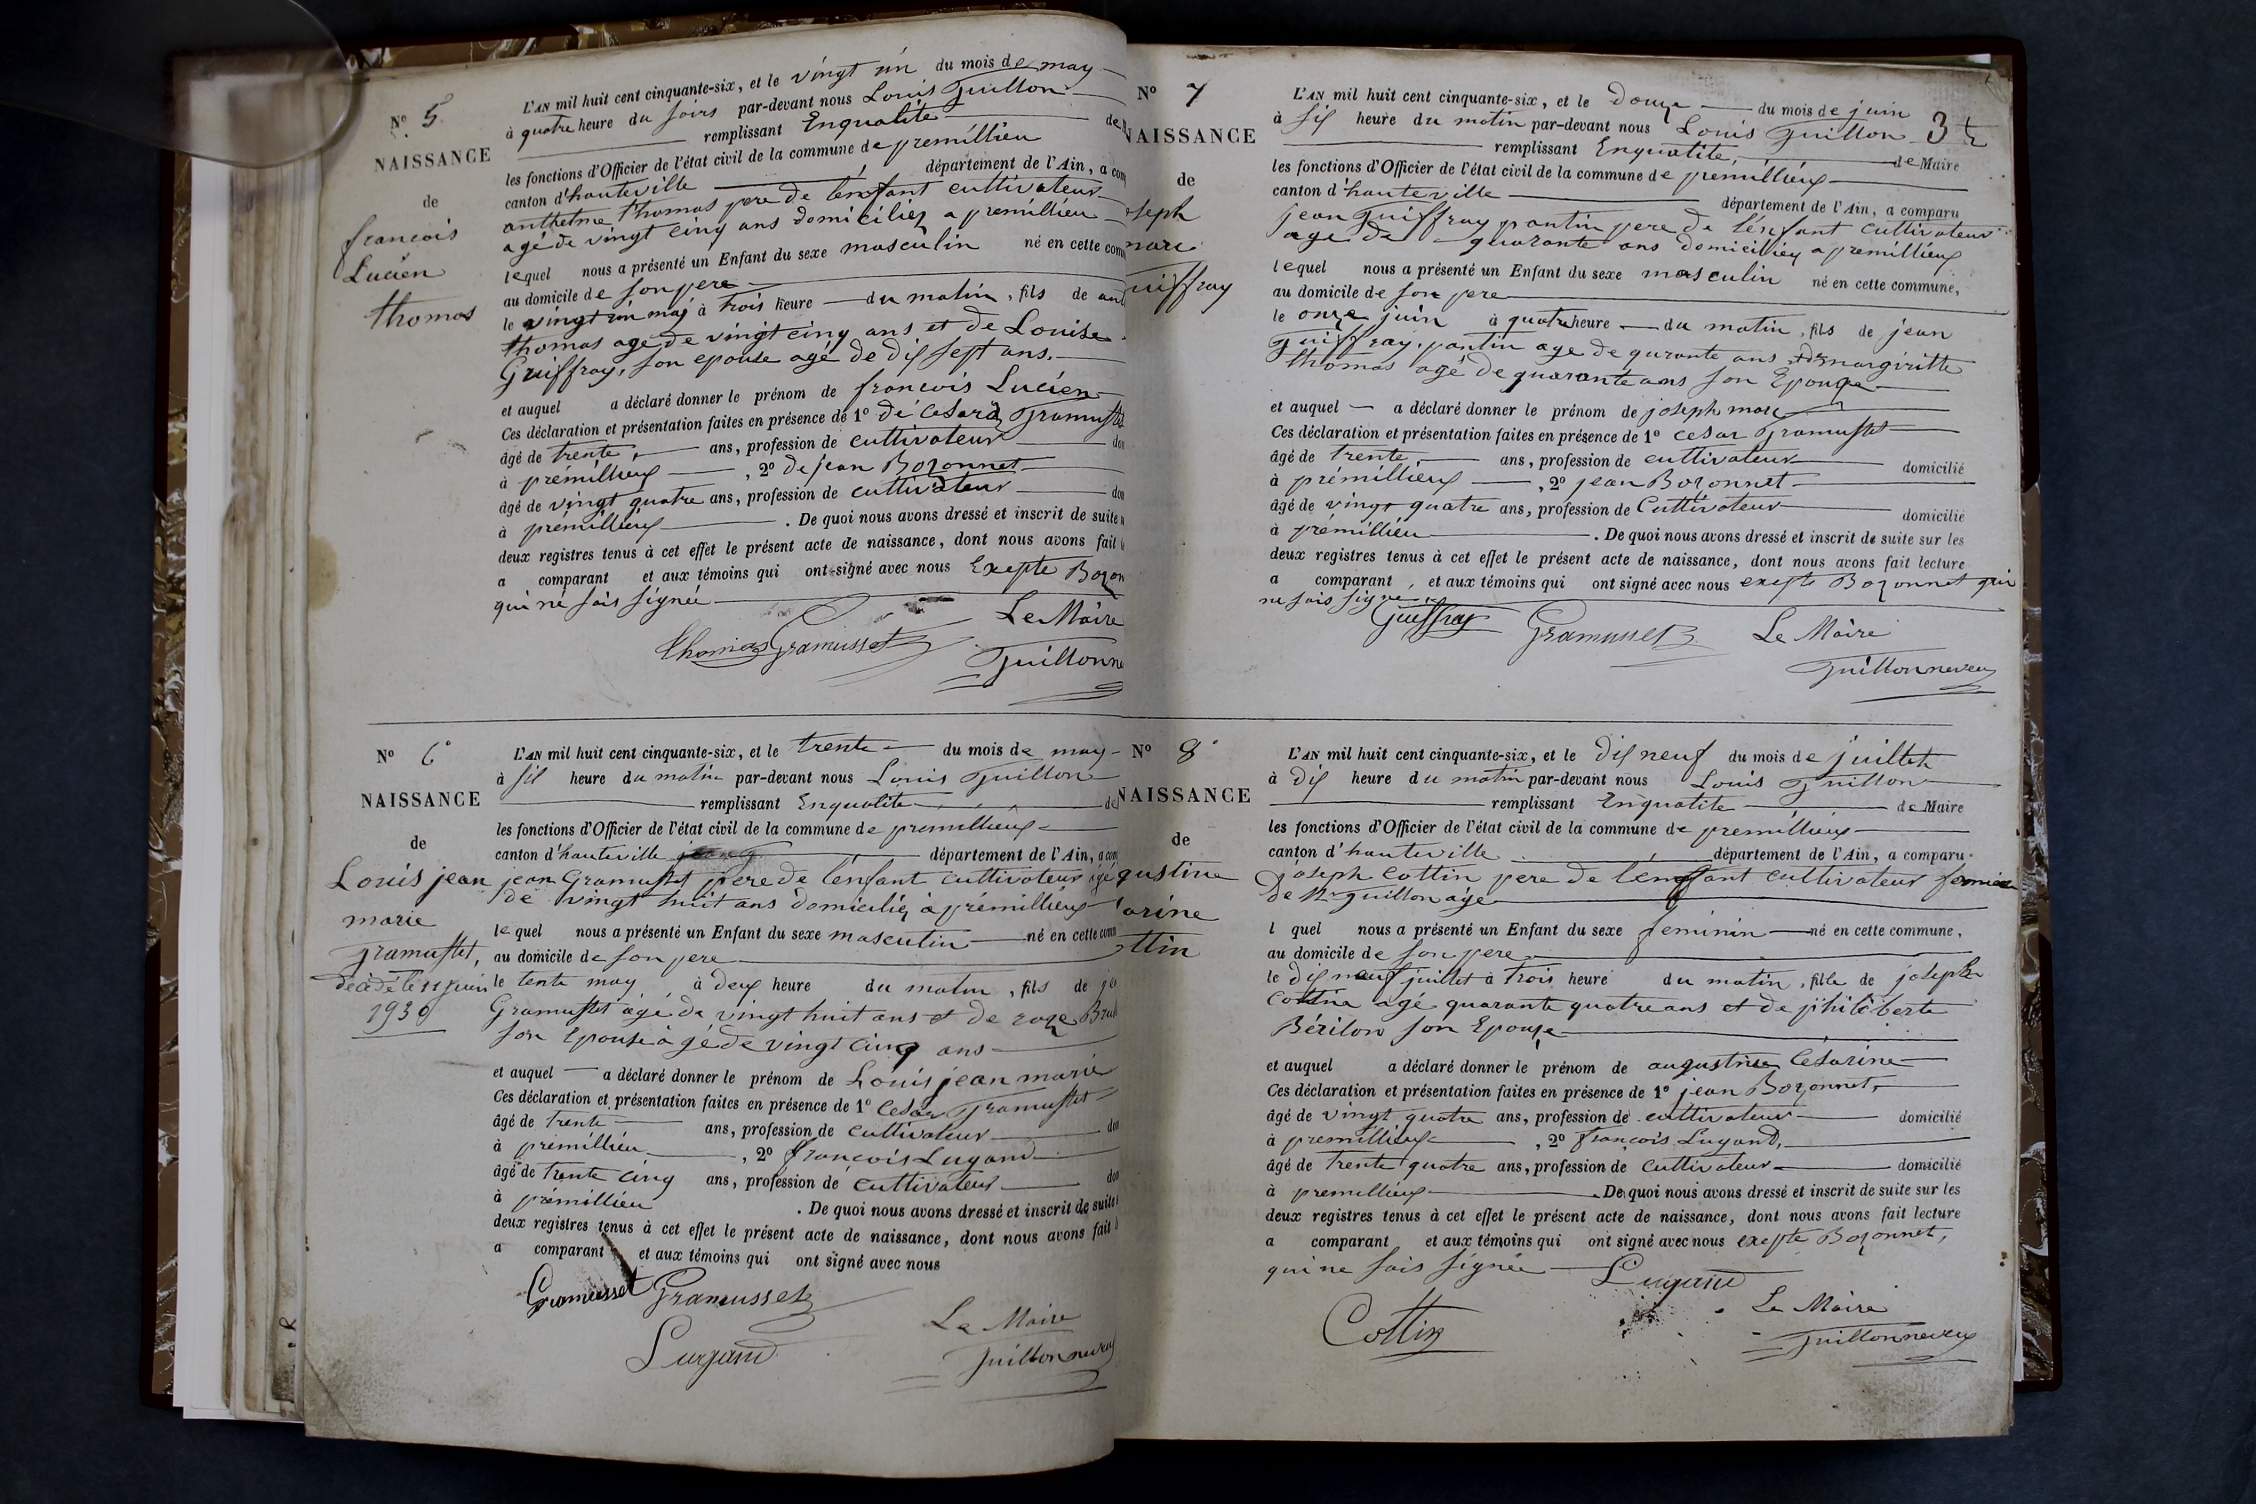 N° 5
NAISSANCE
de
francois
Lucien
thomas
L'AN mil huit cent cinquante-six, et le vingt un du mois de may
à quatre heure du soirs par-devant nous Louis Guillon
remplissant Enqualité de
les fonctions d'Officier de l'état civil de la commune de premillieu
canton d'hauteville département de l'Ain, a com
anthelme thomas pere de l'enfant cultivateur
agé de vingt cinq ans domiciliez a premillieu
lequel nous a présenté un Enfant du sexe masculin né en cette com
au domicile de son pere
le vingt un may à trois heure du matin, fils de ant
thomas age de vingt cinq ans et de Louise
Guiffray, son epouse agé de dix sept ans.
et auquel a déclaré donner le prénom de francois Lucien
Ces déclaration et présentation faites en présence de 1° de Cesard Gramusset
âgé de trente ans, profession de cultivateur dom
à prémillieux, 2° de jean Bozonnet
âgé de vingt quatre ans, profession de cultivateur dom
à prémillieux. De quoi nous avons dressé et inscrit de suite
deux registres tenus à cet effet le présent acte de naissance, dont nous avons fait
a comparant et aux témoins qui ont signé avec nous Exepte Bozon
qui né sais signée
Le Maire
thomas Gramusset
Guillonne
N° 6°
NAISSANCE
de
Louis jean
marie
gramusset,
décédé le 11 juin
1930
L'AN mil huit cent cinquante-six, et le trente du mois de may
à six heure du matin par-devant nous Louis Guillon
remplissant Enqualité de
les fonctions d'Officier de l'état civil de la commune de premillieux
canton d'hauteville département de l'Ain, a com
jean Gramusset pere de l'enfant cultivateur agé
de vingt huit ans domiciliez à prémillieux
le quel nous a présenté un Enfant du sexe masculin né en cette comm
au domicile de son pere
le tente may à deux heure du matin, fils de je
Gramusset âgé de vingt huit ans et de roze
son Epouse à gé de vingt cinq ans
et auquel a déclaré donner le prénom de Louis jean marie
Ces déclaration et présentation faites en présence de 1° Cesar Gramusset
âgé de trente ans, profession de cultivateur dom
à premillieu, 2° francois Lugand
âgé de trente cinq ans, profession de cultivateur dom
à prémillieu. De quoi nous avons dressé et inscrit de suite
deux registres tenus à cet effet le présent acte de naissance, dont nous avons fait
a comparant et aux témoins qui ont signé avec nous
Gramusset Gramusset
Lugand
Le Maire
Guillonneveu
N° 7
NAISSANCE
de
oseph
marc
uiffray
3
L'AN mil huit cent cinquante-six, et le Douze du mois de juin
à six heure du matin par-devant nous Louis Guillon
remplissant Enqualité, de Maire
les fonctions d'Officier de l'état civil de la commune de premillieux
canton d'hauteville département de l'Ain, a comparu
jean Guiffray pantin pere de l'enfant cultivateur
age de quarante ans domiciliez a premillieux
lequel nous a présenté un Enfant du sexe masculin né en cette commune,
au domicile de son pere
le onze juin à quatre heure du matin, fils de jean
Guiffray, pantin age de qurante ans et de margiritte
thomas agé de quarante ans son Epouze
et auquel a déclaré donner le prénom de joseph marc
Ces déclaration et présentation faites en présence de 1° cesar Gramusset
âgé de trente, ans, profession de cultivateur domicilié
à prémillieux, 2° jean Bozonnet
âgé de vingt quatre ans, profession de Cultivateur domicilié
à prémillieu. De quoi nous avons dressé et inscrit de suite sur les
deux registres tenus à cet effet le présent acte de naissance, dont nous avons fait lecture
a comparant, et aux témoins qui ont signé avec nous exepte Bozonnet qui
ne sais signe
Guiffray Gramusset
Le Maire
Guillonneveu
N° 8°
NAISSANCE
de
gustine
arine
ttin
L'AN mil huit cent cinquante-six, et le dix neuf du mois de juillet
à dix heure du matin par-devant nous Louis Guillon
remplissant Enqualité de Maire
les fonctions d'Officier de l'état civil de la commune de premillieux
canton d'hauteville département de l'Ain, a comparu
joseph Cottin pere de l'enffant cultivateur fermier
de Mr guillon agé
l quel nous a présenté un Enfant du sexe feminin né en cette commune,
au domicile de son pere
le dix neuf juillet à trois heure du matin, fille de joseph
Cottin agé quarante quatre ans et de philiberte
Bérilon son Epouze
et auquel a déclaré donner le prénom de augustine Césarine
Ces déclaration et présentation faites en présence de 1° jean Bozonnet,
âgé de vingt quatre ans, profession de cultivateur domicilié
à premillieux, 2° francois Lugand,
âgé de trente quatre ans, profession de cultivateur domicilié
à premillieux. De quoi nous avons dressé et inscrit de suite sur les
deux registres tenus à cet effet le présent acte de naissance, dont nous avons fait lecture
a comparant et aux témoins qui ont signé avec nous exepte Bozonnet,
qui ne sais signée
Lugand
Cottin
Le Maire
Guillonneveu